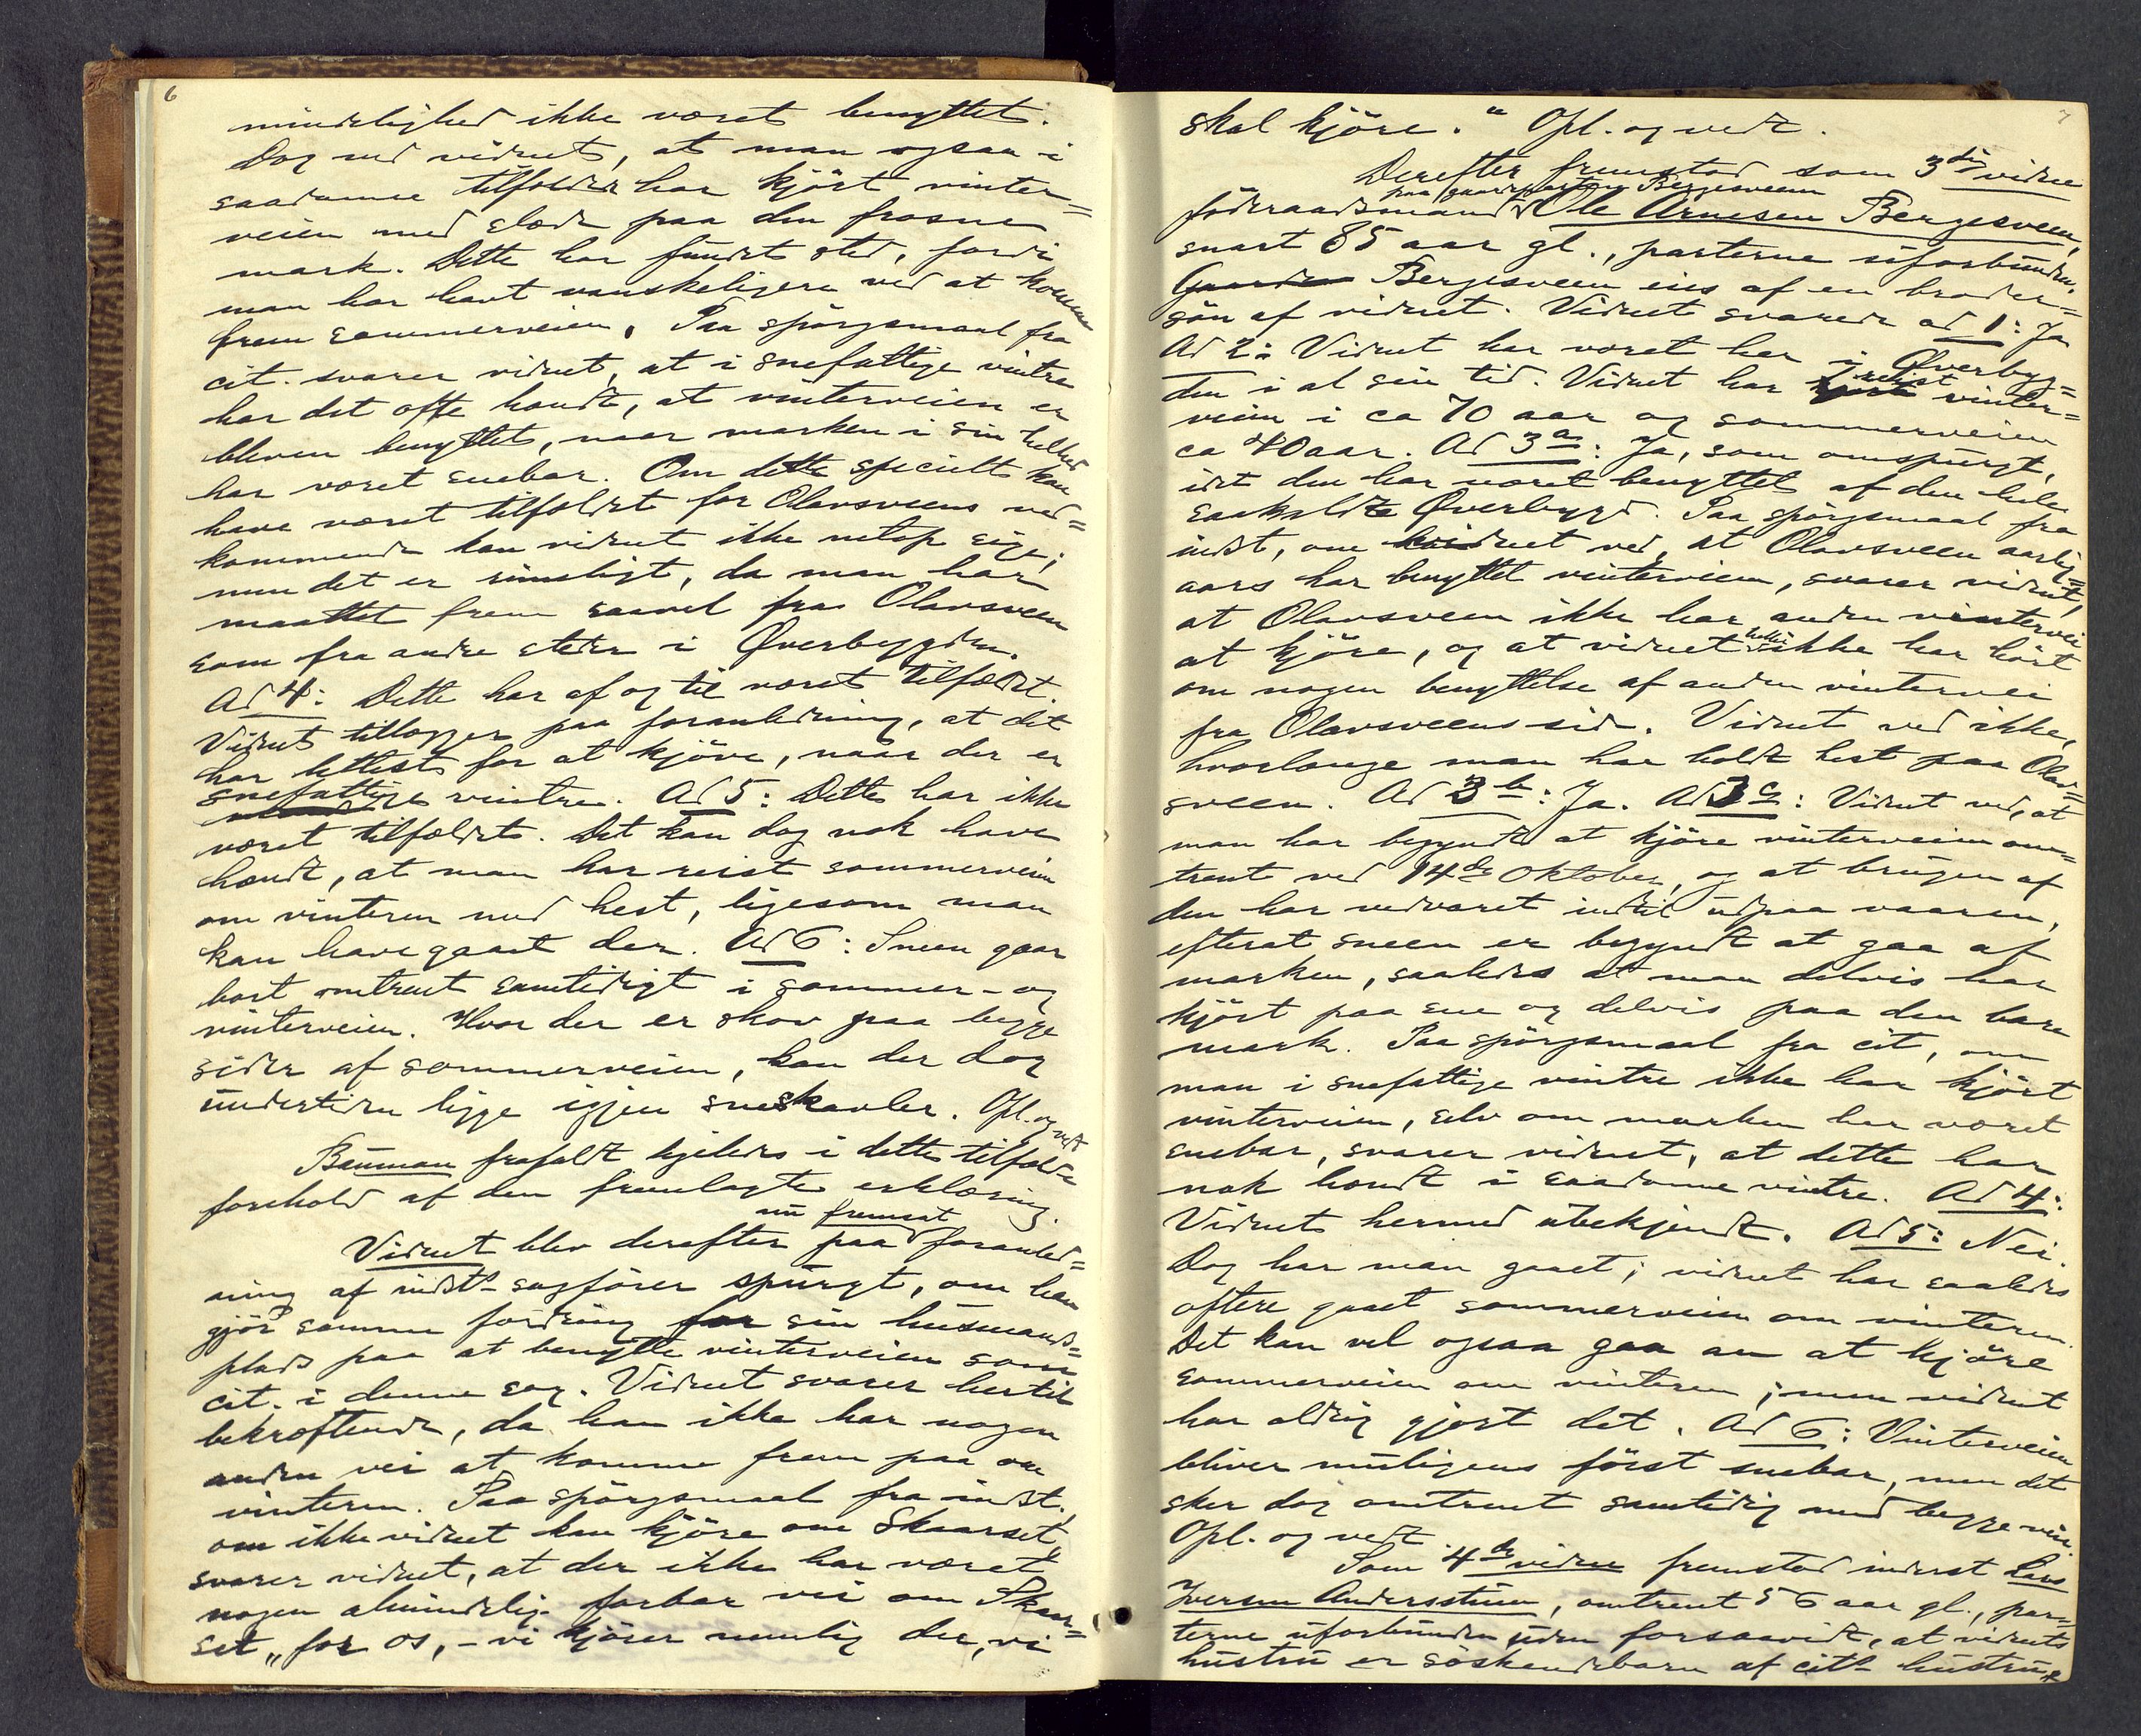 6
mindelighed ikke været benyttet.
Dog ved vidnet, at man ogsaa i
saadanne tilfælder har kjört vinter=
veien med slæde paa den frosne
mark. Dette har fundet sted, fordi
man har havt vanskeligere ved at komme
frem sommerveien. Paa spörgsmaal fra
cit. svarer vidnet, at i snefattige vintre
har det ofte hændt, at vinterveien er
bleven benyttet, naar marken i sin helhed
har været snebar. Om dette specielt kan
have været tilfældet for Olavsveens ved=
kommende kan vidnet ikke netop sige;
men det er rimeligt, da man har
maattet frem saavel fra Olavsveen
som fra andre steder i Øverbygden.
Ad 4: Dette har af og til været tilfældet.
Vidnet tillægger paa foranledning, at det
har lettest for at kjöre, naar der er
snefattige vintre. Ad 5: Dette har ikke
været tilfældet. Det kan dog nok have
hændt, at man har reist sommerveien
om vinteren med hest, ligesom man
kan have gaaet der. Ad 6: Sneen gaar
bort omtrent samtidigt i sommer- og
vinterveien. Hvor der er skov paa begge
sider af sommerveien, kan der dog
undertiden ligge igjen sneskavler. Opl. og vedt
Bauman frafaldt hjeldes i dette tilfælde
forehold af den fremlagte erklæring.
nu fremsat
Vidnet blev derefter paa foranled=
ning af indst- sagförer spurgt, om han
gjör samme fordring for sin husmands=
plads paa at benytte vinterveien som
cit. i denne sag. Vidnet svarer hertil
bekræftende, da han ikke har nogen
anden vei at komme frem paa om
vinteren. Paa spörgsmaal fra indst.,
om ikke vidnet kan kjöre om Skaarset,
svarer vidnet, at der ikke har været
nogen almindelig farbar vei om Skaar=
set „for os, - vi kjörer nemlig der, vi
7
skal kjöre." Opl. og vedt.
Derefter fremstod som 3die vidne
paa gaardparten Bergesveen
föderaadsmand Ole Arnesen Bergesveen,
snart 85 aar gl., parterne uforbunden.
Gaarden Bergesveen eies af en broder=
sön af vidnet. Vidnet svarede ad 1: Ja
Ad 2: Vidnet har været her i Øverbyg=
den i al sin tid. Vidnet har kjört reist vinter=
veien i ca 70 aar og sommerveien
ca 40 aar. Ad 3a: Ja, som omspurgt,
idet den har været benyttet af den hele
saakaldte Øverbygd. Paa spörgsmaal fra
indst, om vidnet ved, at Olavsveen aarlig=
aars har benyttet vinterveien, svarer vidnet,
at Olavsveen ikke har anden vintervei
at kjöre, og at vidnet heller ikke har hört
om nogen benyttelse af anden vintervei
fra Olavsveens side. Vidnet ved ikke,
hvorlænge man har holdt hest paa Olav=
sveen. Ad 3b: Ja. Ad 3c: Vidnet ved, at
man har begyndt at kjöre vinterveien om=
trent ved 14de Oktober, og at brugen af
den har vedvaret indtil udpaa vaaren,
efterat sneen er begyndt at gaa af
marken, saaledes at man delvis har
kjört paa sne og delvis paa den bare
mark. Paa spörgsmaal fra cit, om
man i snefattige vintre ikke har kjört
vinterveien, selv om marken har været
snebar, svarer vidnet, at dette har
nok hændt i saadanne vintre. Ad 4:
Vidnet hermed ubekjendt. Ad 5: Nei.
Dog har man gaaet; vidnet har saaledes
oftere gaaet sommerveien om vinteren.
Det kan vel ogsaa gaa an at kjöre
sommerveien om vinteren; men vidnet
har aldrig gjort det. Ad 6: Vinterveien
bliver muligens först snebar, men det
sker dog omtrent samtidig med begge veie.
Opl. og vedt.
Som 4de vidne fremstod inderst Lars
Iversen Andersstuen, omtrent 56 aar gl., par=
terne uforbunden uden forsaavidt, at vidnets
hustru er söskendebarn af cits hustru